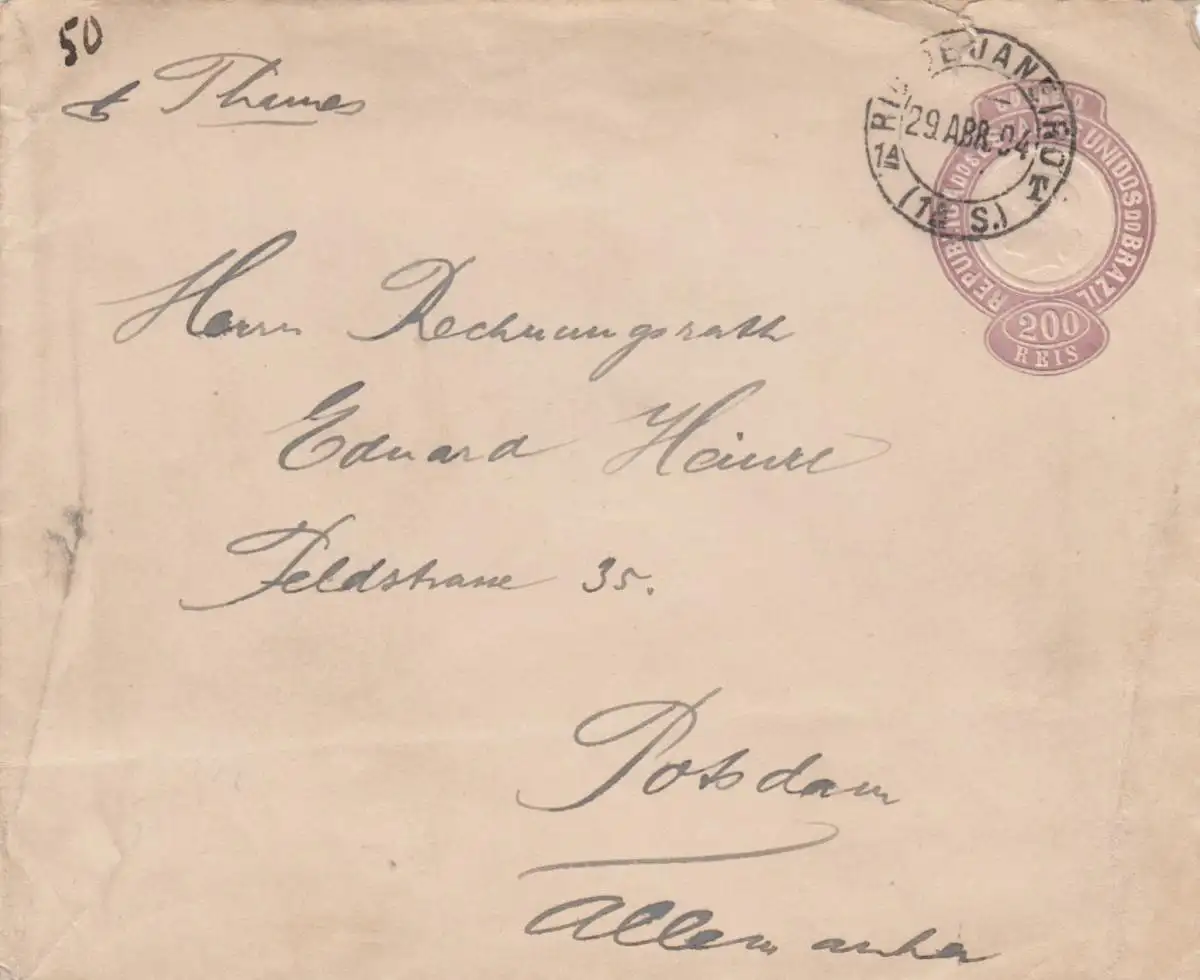 50
Thames
RIO DE JANEIRO T
29 ABR. 94
1A
(1A S.)
CORREIO
REPUBLICA DOS ESTADOS UNIDOS DO BRAZIL
200
REIS
Herrn Rechnungsrath
Eduard Heinze
Feldstrasse 35.
Potsdam
Allemanha